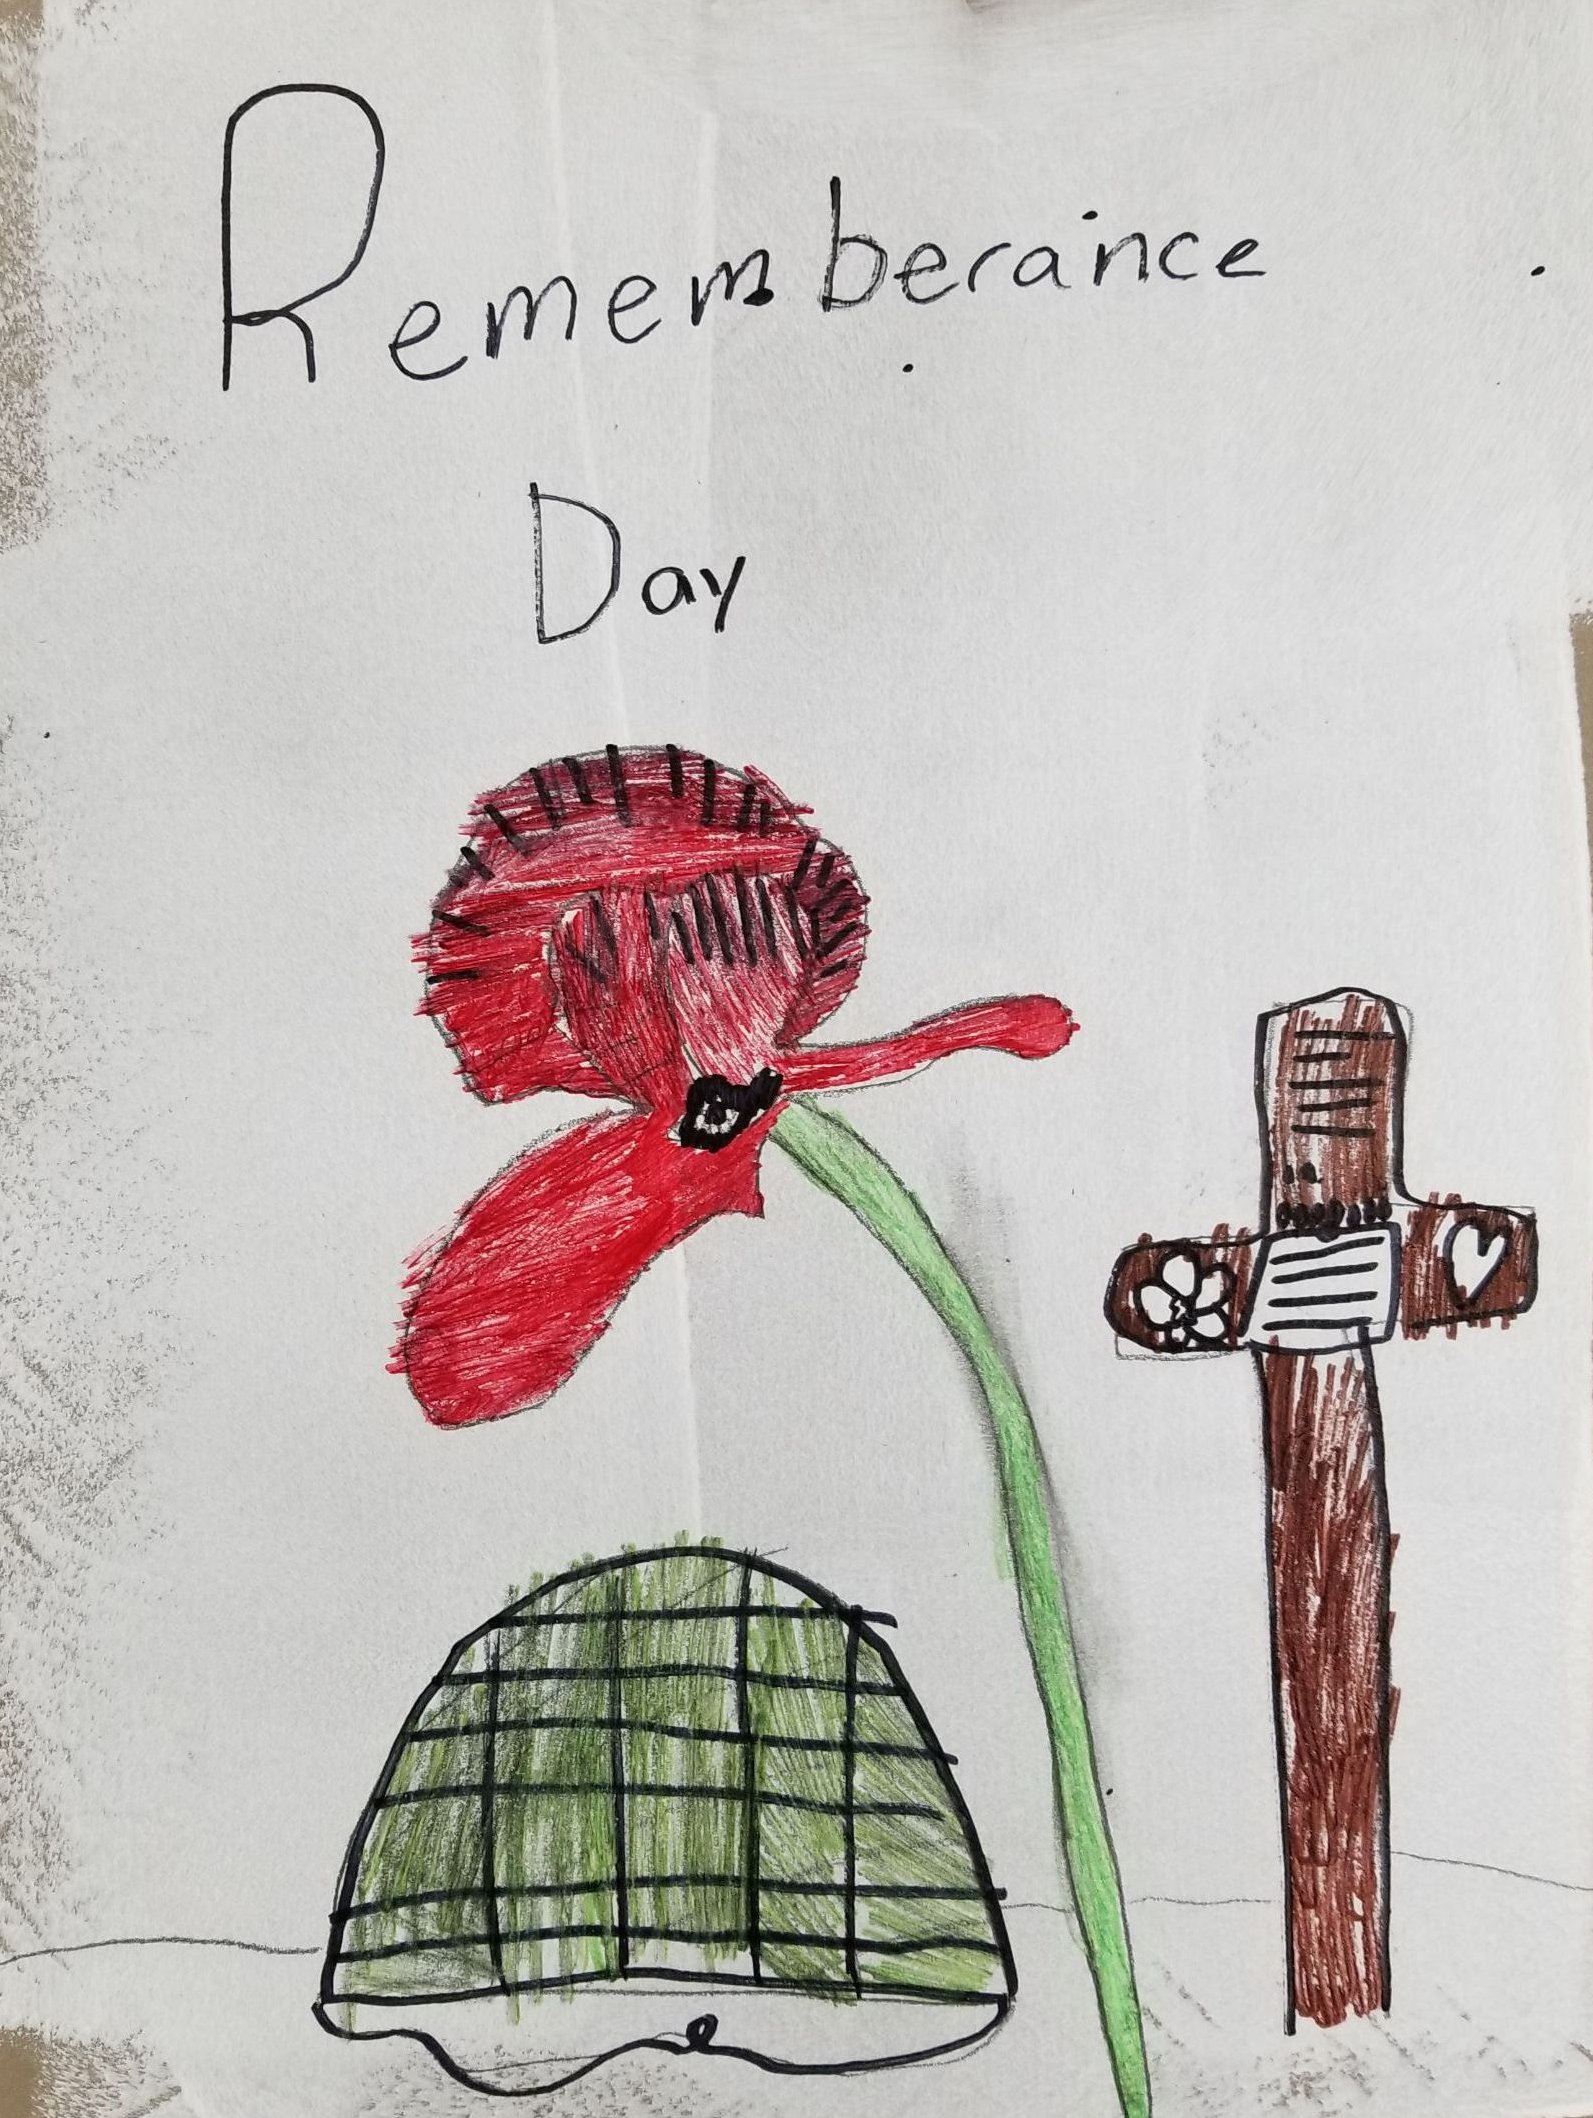 Rememberance
Day